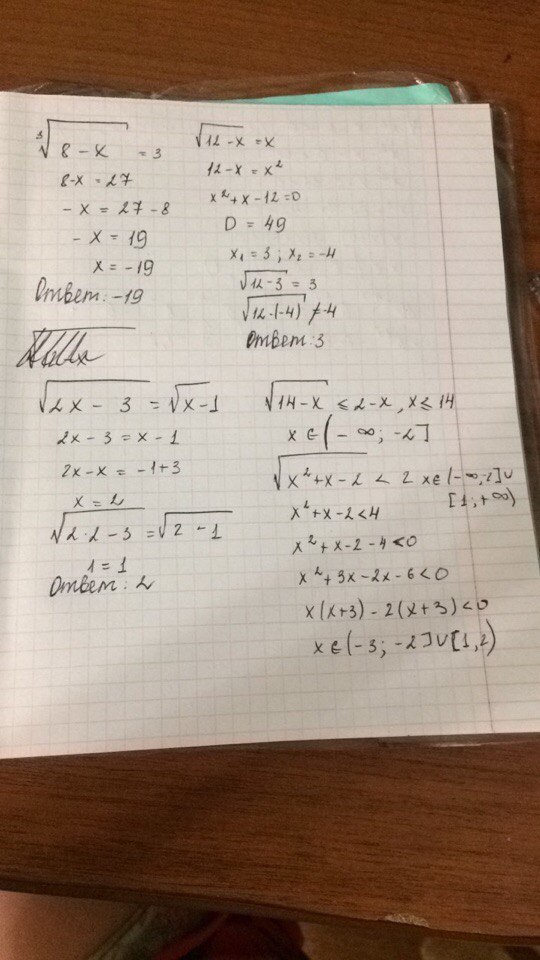 ∛(8 - x) = 3
8-x = 27
- x = 27 - 8
- x = 19
x = -19
Ответ: -19
√(12 - x) = x
12-x = x²
x² + x - 12 = 0
D = 49
x₁ = 3 ; x₂ = -4
√(12-3) = 3
√(12-(-4)) ≠ -4
Ответ: 3
√(2x - 3) = √(x-1)
2x - 3 = x - 1
2x - x = -1+3
x = 2
√(2·2 - 3) = √(2 - 1)
1 = 1
Ответ: 2
√(14-x) ≤ 2-x, x ≤ 14
x ∈ (-∞; -2]
√(x² + x - 2) < 2 x ∈ (-∞; -2] ∪
[1, +∞)
x² + x - 2 < 4
x² + x - 2 - 4 < 0
x² + 3x - 2x - 6 < 0
x(x+3) - 2(x+3) < 0
x ∈ (-3; -2] ∪ [1, 2)